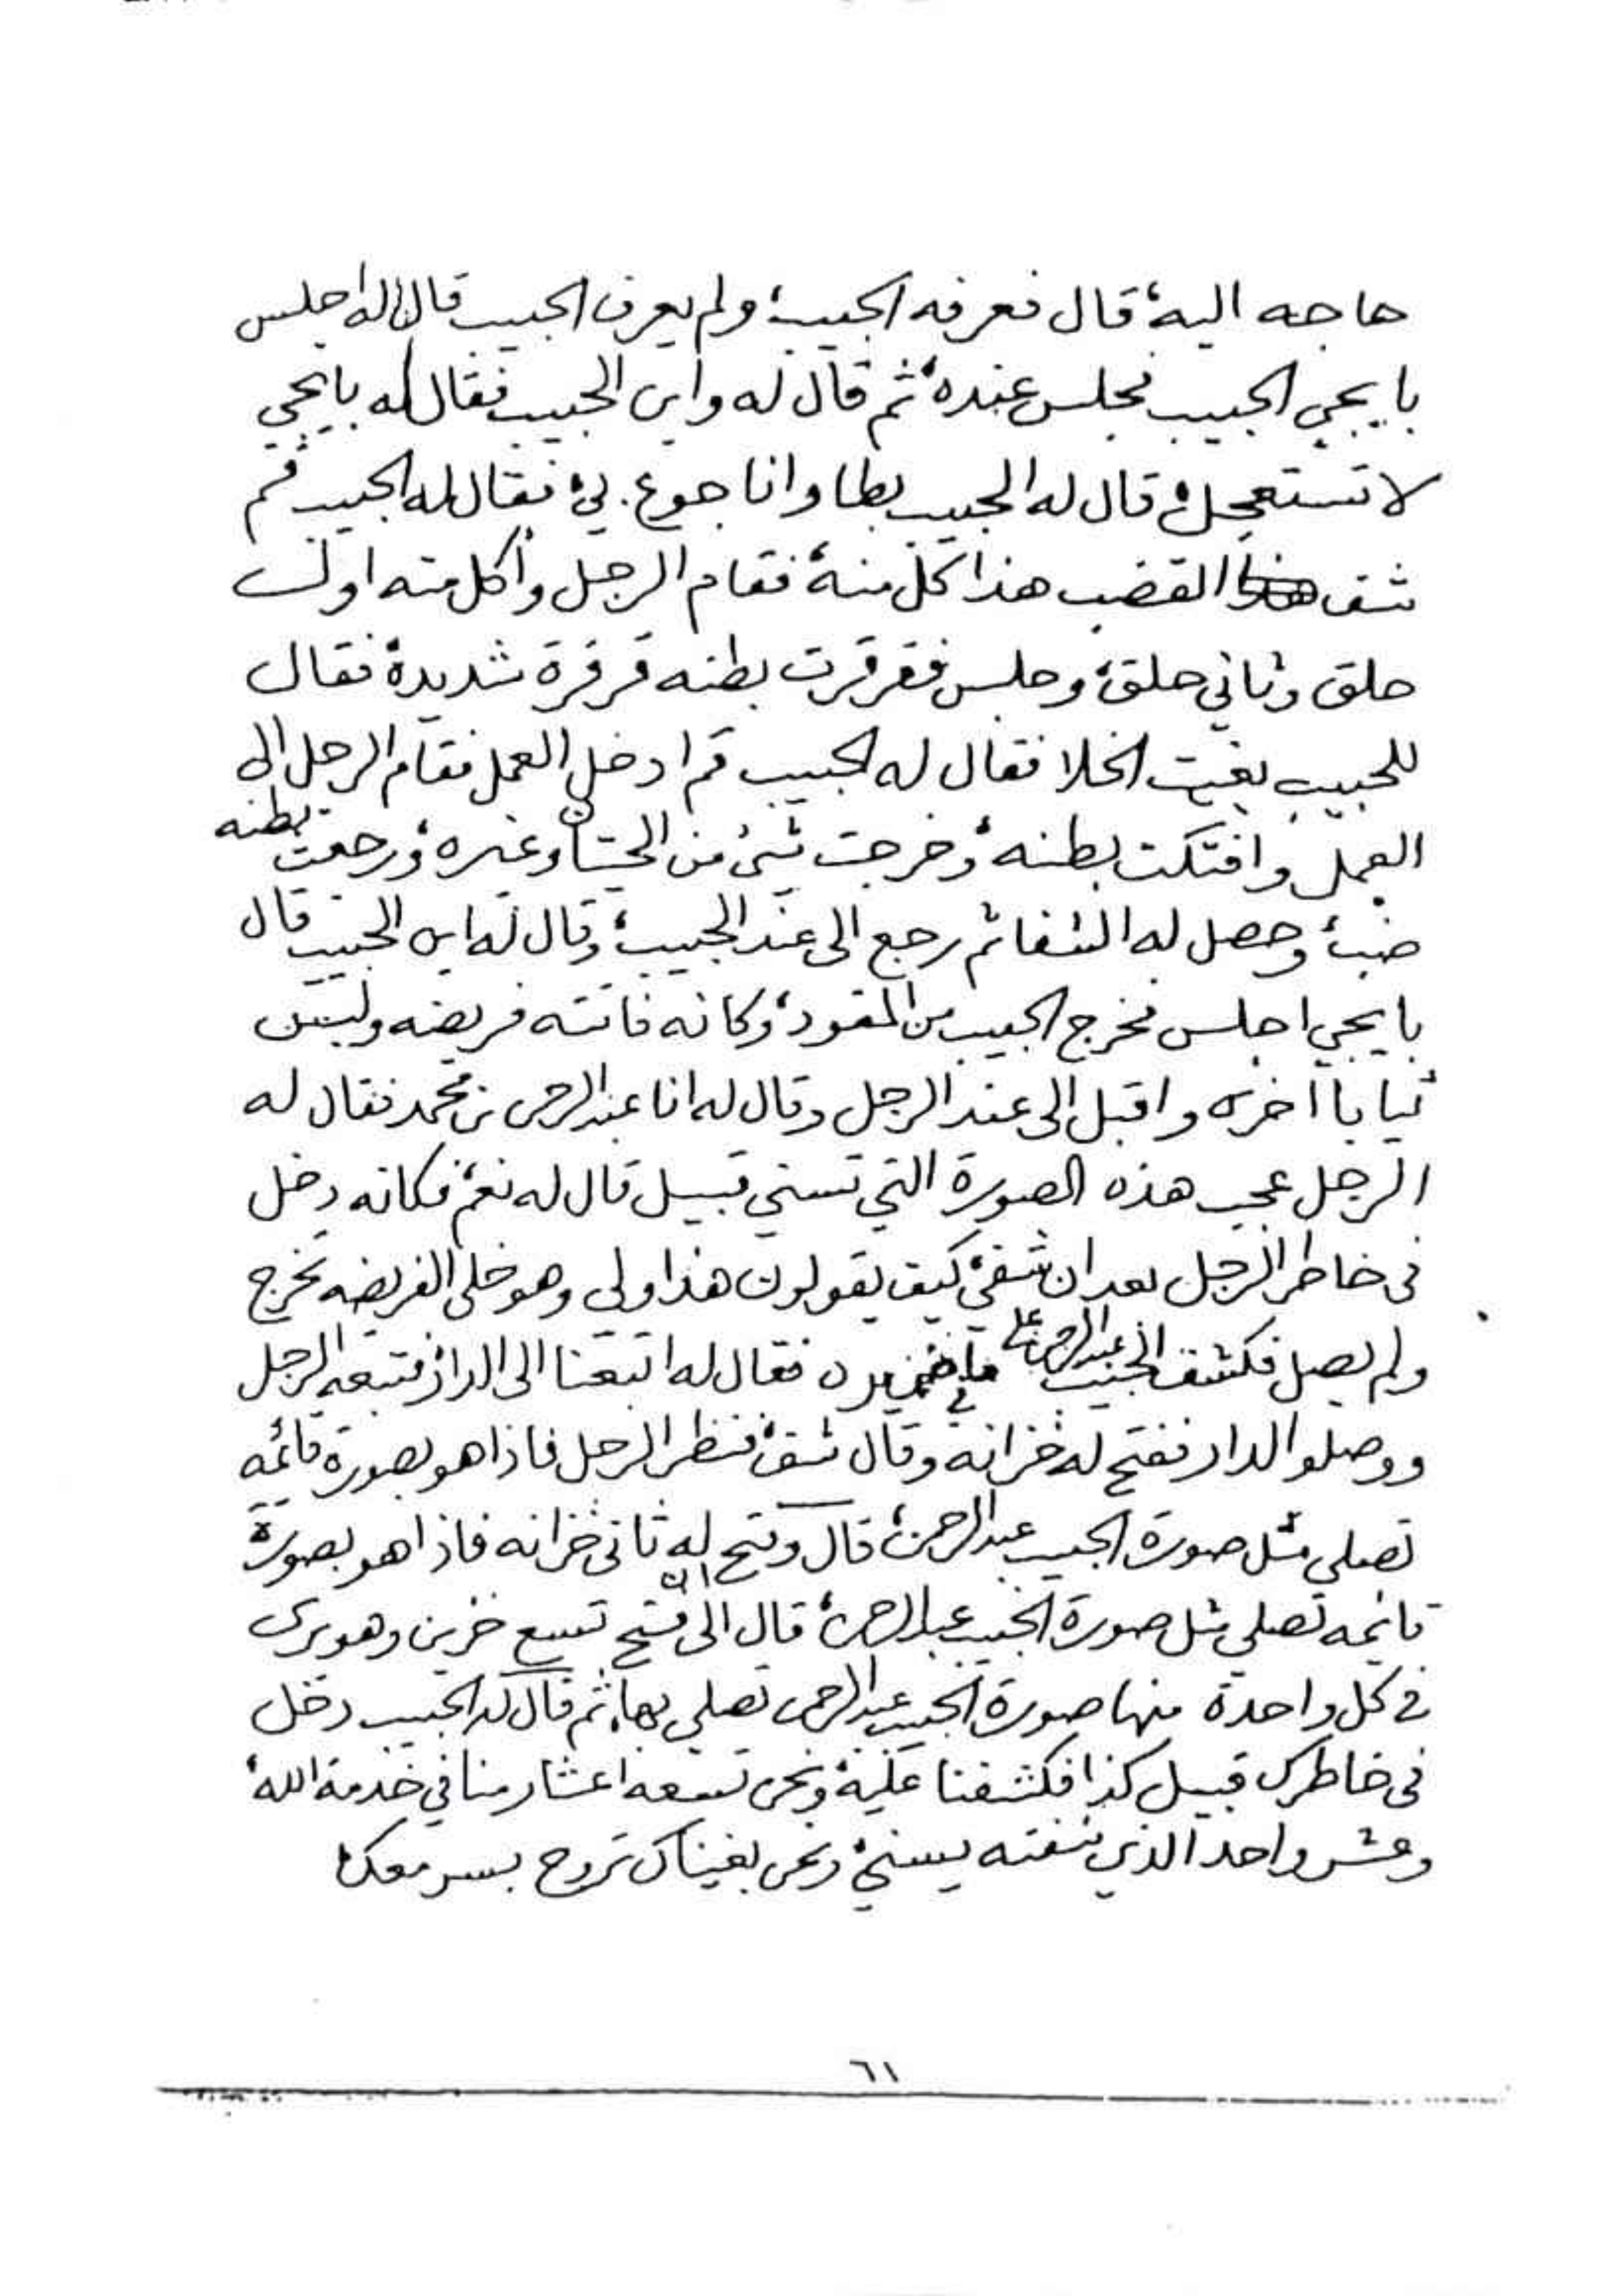 حاجه اليه، قال فعرفه الحبيب، ولم يعرف الحبيب قال له اجلس
با يجي الحبيب فجلس عنده، ثم قال له واين الحبيب فقال له با يجي
لا تستعجل، قال له الحبيب بطا وانا جوع بي، فقال له الحبيب قم
شف القضب هذا كل منه، فقام الرجل وأكل منه اول
حلق وثاني حلق، وجلس فقرقرت بطنه قرقرة شديدة، فقال
للحبيب بغيت الخلا فقال له الحبيب قم ادخل العمل فقام الرجل الى
العمل وافتكت بطنه، وخرجت شيء من وغيره، ورجعت بطنه
وحصل له الشفا ثم رجع الى عند الحبيب، وقال له اين الحبيب قال
با يجي اجلس فخرج الحبيب من، وكانه فاتته فريضه ولبس
ثيابا اخرى واقبل الى عند الرجل وقال له انا عبدالرحمن بن محمد فقال له
الرجل عجب هذه الصورة التي تسني قبيل قال له نعم، فكانه دخل
في خاطر الرجل بعد ان شفي، كيف يقولون هذا ولي وهو خلى الفريضه تخرج
ولم يصل فكشف الحبيب عبدالرحمن على ما في ضميره فقال له اتبعنا الى الدار، فتبعه الرجل
ووصلو الدار ففتح له خزانه وقال شف، فنظر الرجل فاذا هو بصورة قائمه
تصلي مثل صورة الحبيب عبدالرحمن، قال وفتح له ثاني خزانه فاذا هو بصورة
قائمه تصلي مثل صورة الحبيب عبدالرحمن، قال الى ان فتح تسع خزين وهو يرى
في كل واحدة منها صورة الحبيب عبدالرحمن تصلي بها، ثم قال له الحبيب دخل
في خاطرك قبيل كذا فكشفنا عليه، ونحن تسعه اعشار منا في خدمة الله،
وعشر واحد الذي شفته يسني، ونحن بغيناك تروح بسر معك،
٦١